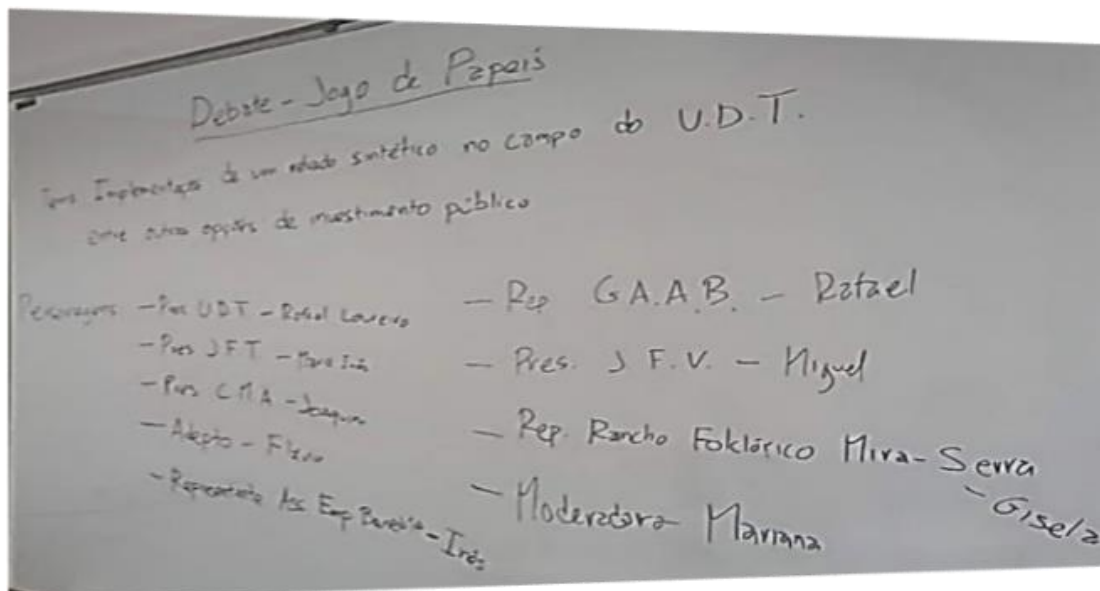 Debate - Jogo de Papeis
Tema Implementação de um relvado sintético no campo do U.D.T.
entre outras opções de investimento público
Personagens - Pres UDT - Rafael Loureiro
- Pres JFT - Maria Inês
- Pres CMA - Joaquim
- Adepto - Flávio
- Representante Ass Emp
- Inês
- Rep G.A.A.B. - Rafael
- Pres. J F.V. - Miguel
- Rep. Rancho Foklórico Mira-Serra
- Gisela
- Moderadora Mariana